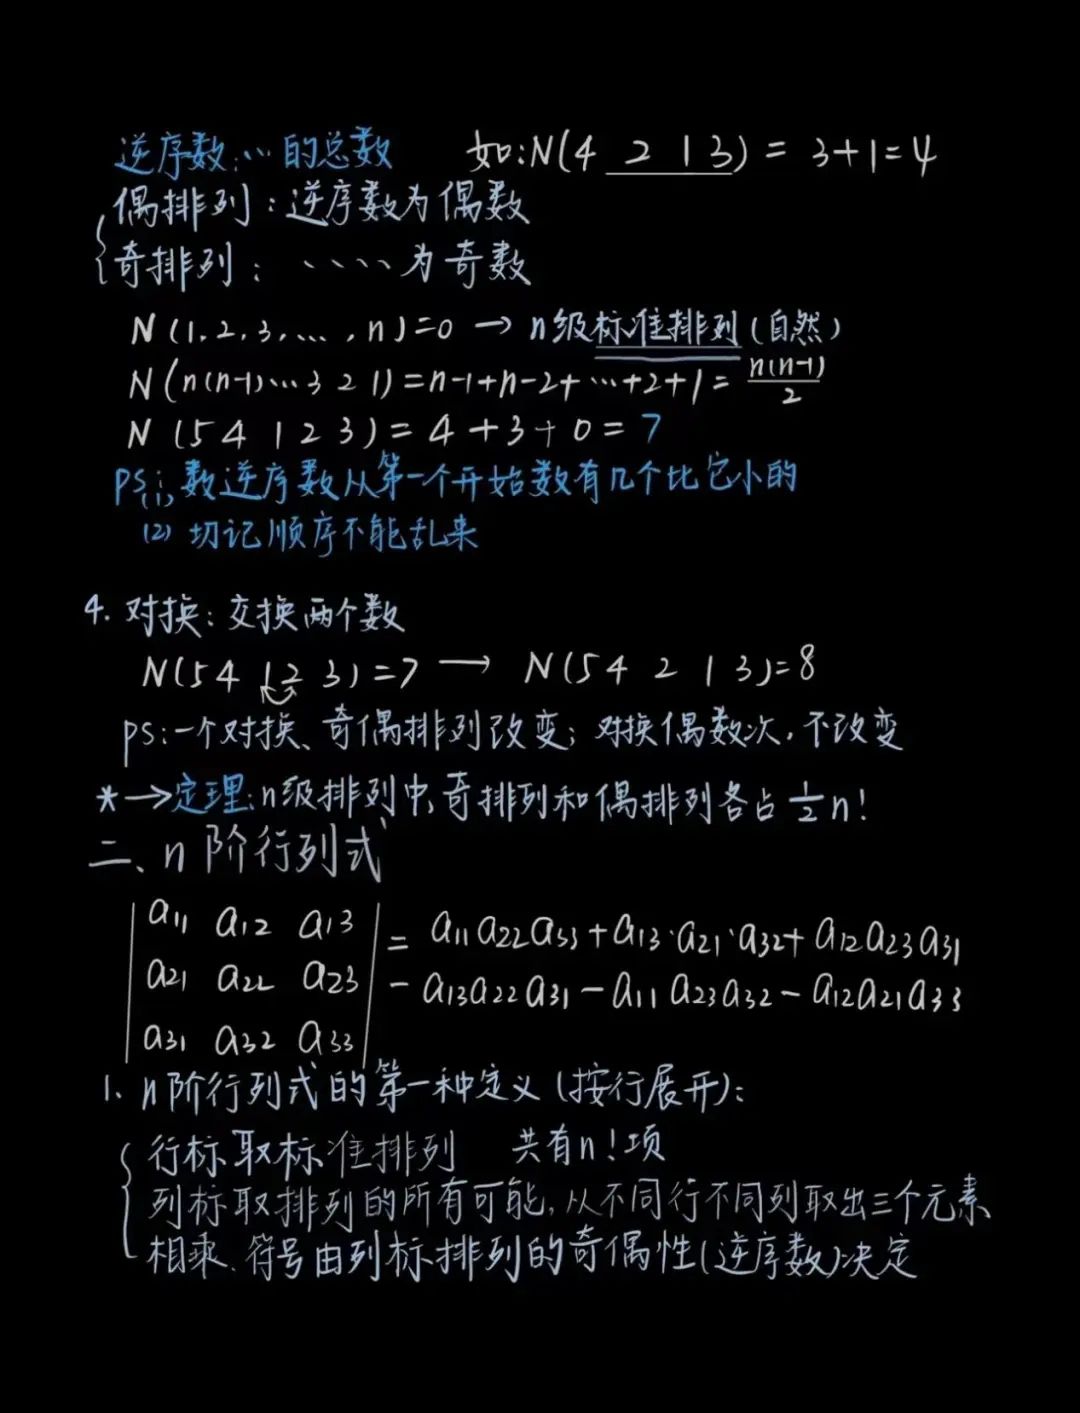 逆序数:… 的总数 如:N(4 2 1 3) = 3+1=4
偶排列:逆序数为偶数
奇排列: 、、、、为奇数
N(1,2,3,…,n)=0 → n级标准排列(自然)
N(n(n-1)…3 2 1)=n-1+n-2+…+2+1= n(n-1)/2
N (5 4 1 2 3)= 4+3+0=7
ps:(1) 数逆序数从第一个开始数有几个比它小的
(2) 切记顺序不能乱来
4. 对换:交换两个数
N(5 4 1 2 3)=7 → N(5 4 2 1 3)=8
ps:一个对换、奇偶排列改变;对换偶数次,不改变
* →定理:n级排列中,奇排列和偶排列各占 1/2 n!
二、n 阶行列式
| a11 a12 a13 | = a11a22a33+a13·a21·a32+a12a23a31
| a21 a22 a23 | - a13a22a31-a11a23a32-a12a21a33
| a31 a32 a33 |
1、n阶行列式的第一种定义(按行展开):
行标取标准排列 共有n!项
列标取排列的所有可能,从不同行不同列取出三个元素
相乘、符号由列标排列的奇偶性(逆序数)决定